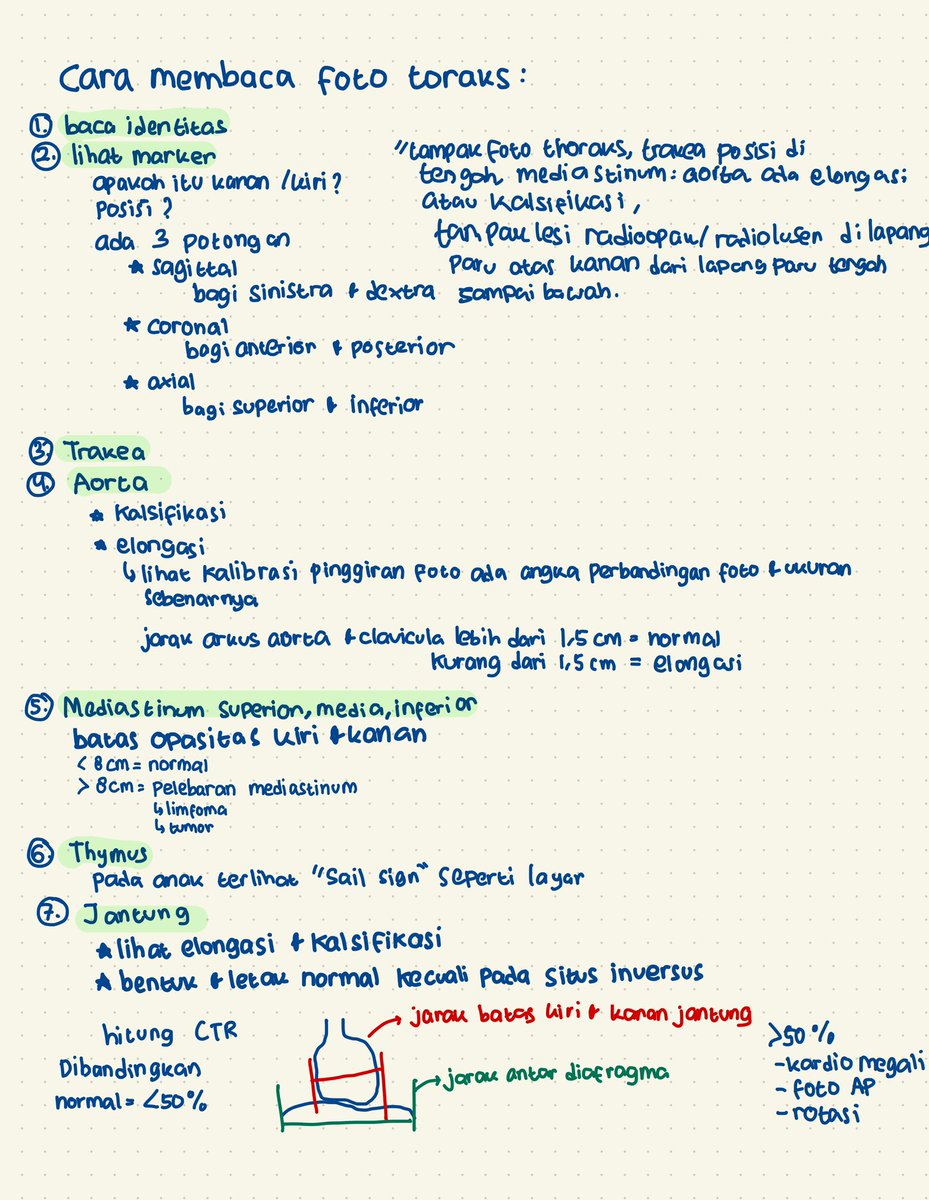 Cara membaca foto toraks :
1. baca identitas
2. lihat marker
apakah itu kanan /kiri?
Posisi ?
ada 3 potongan
* sagittal
bagi sinistra & dextra
* coronal
bagi anterior & posterior
* axial
bagi superior & inferior
"tampak foto thoraks, trakea posisi di
tengah mediastinum : aorta ada elongasi
atau kalsifikasi,
tampak lesi radioopak/radiolusen di lapang
paru atas kanan dari lapang paru tengah
sampai bawah.
3. Trakea
4. Aorta
* kalsifikasi
* elongasi
↳ lihat kalibrasi pinggiran foto ada angka perbandingan foto & ukuran
sebenarnya
jarak arkus aorta & clavicula lebih dari 1,5 cm = normal
kurang dari 1,5 cm = elongasi
5. Mediastinum superior, media, inferior
batas opasitas kiri & kanan
< 8 cm = normal
> 8 cm = pelebaran mediastinum
↳ limfoma
↳ tumor
6. Thymus
pada anak terlihat "Sail sign" seperti layar
7. Jantung
* lihat elongasi & kalsifikasi
* bentuk & letak normal kecuali pada situs inversus
hitung CTR
Dibandingkan
normal = <50%
→ jarak batas kiri & kanan jantung
→ jarak antar diafragma
>50%
- kardio megali
- foto AP
- rotasi